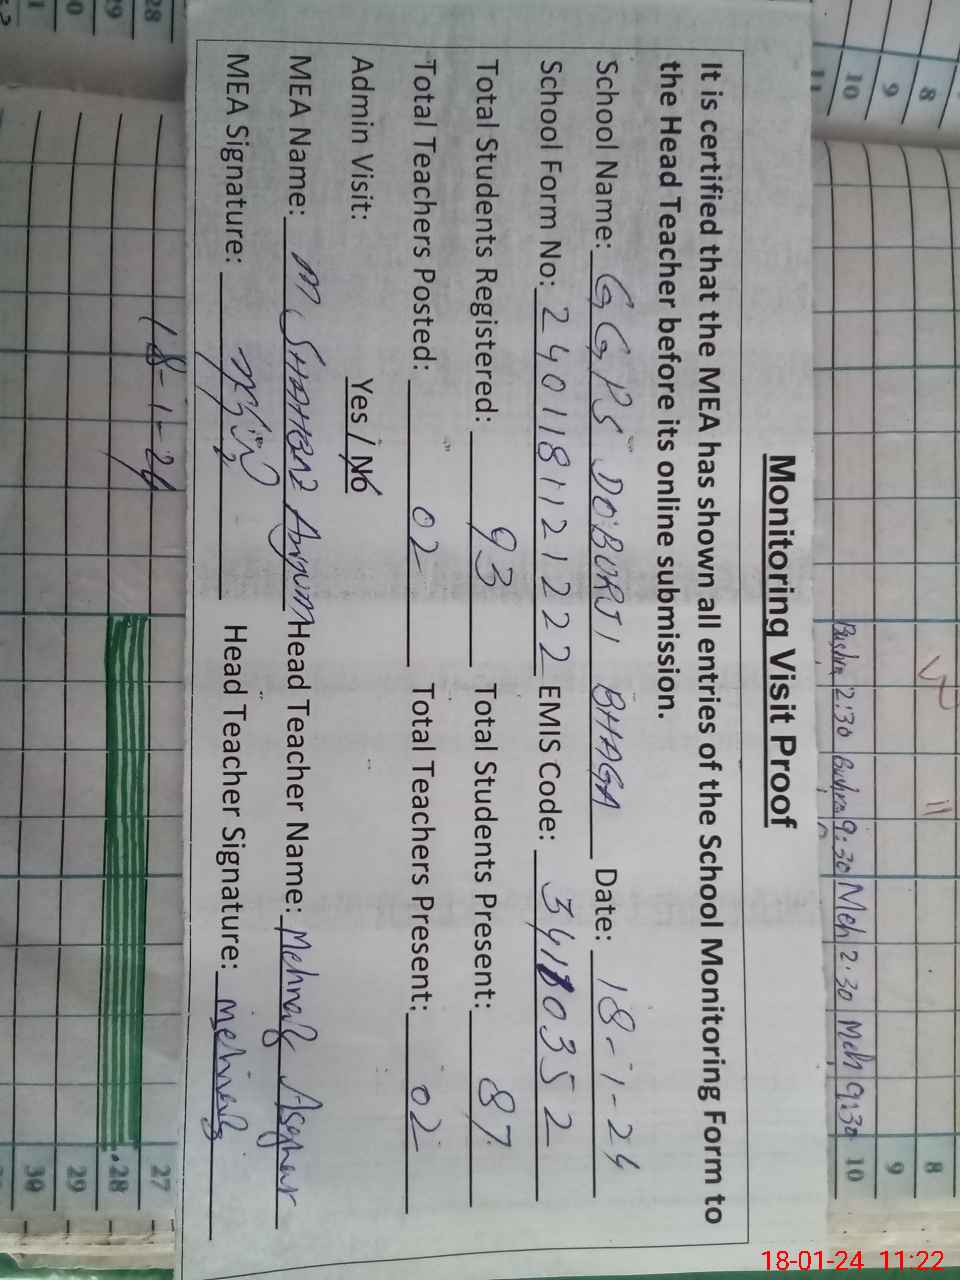 Monitoring Visit Proof
It is certified that the MEA has shown all entries of the School Monitoring Form to
the Head Teacher before its online submission.
School Name: GGPS DOBURJI BHAGA Date: 18-1-24
School Form No: 2401181121222 EMIS Code: 34110352
Total Students Registered: 93 Total Students Present: 87
Total Teachers Posted: 02 Total Teachers Present: 02
Admin Visit: Yes / No
MEA Name: M SHAHBAZ Anjum Head Teacher Name: Mehnaz Asghar
MEA Signature: Head Teacher Signature: Mehnaz
18-1-24
2:30 9:30 Meh 2:30 Meh 9:30
8
9
10
8
9
10
27
28
29
30
28
29
18-01-24 11:22